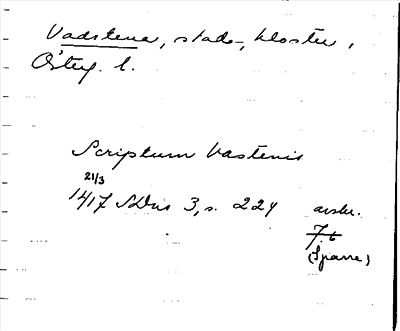 Vadstena, stads-, kloster,
Österg. l.
Scriptum Vastenis
21/3
1417 SDns 3, s. 224 avskr.
7.6
(Sparre)